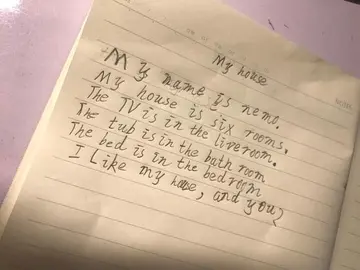 My house
My name is neme.
My house is six rooms.
The TV is in the liveroom.
The tub is in the bath room.
The bed is in the bedroom
I like my house, and you?